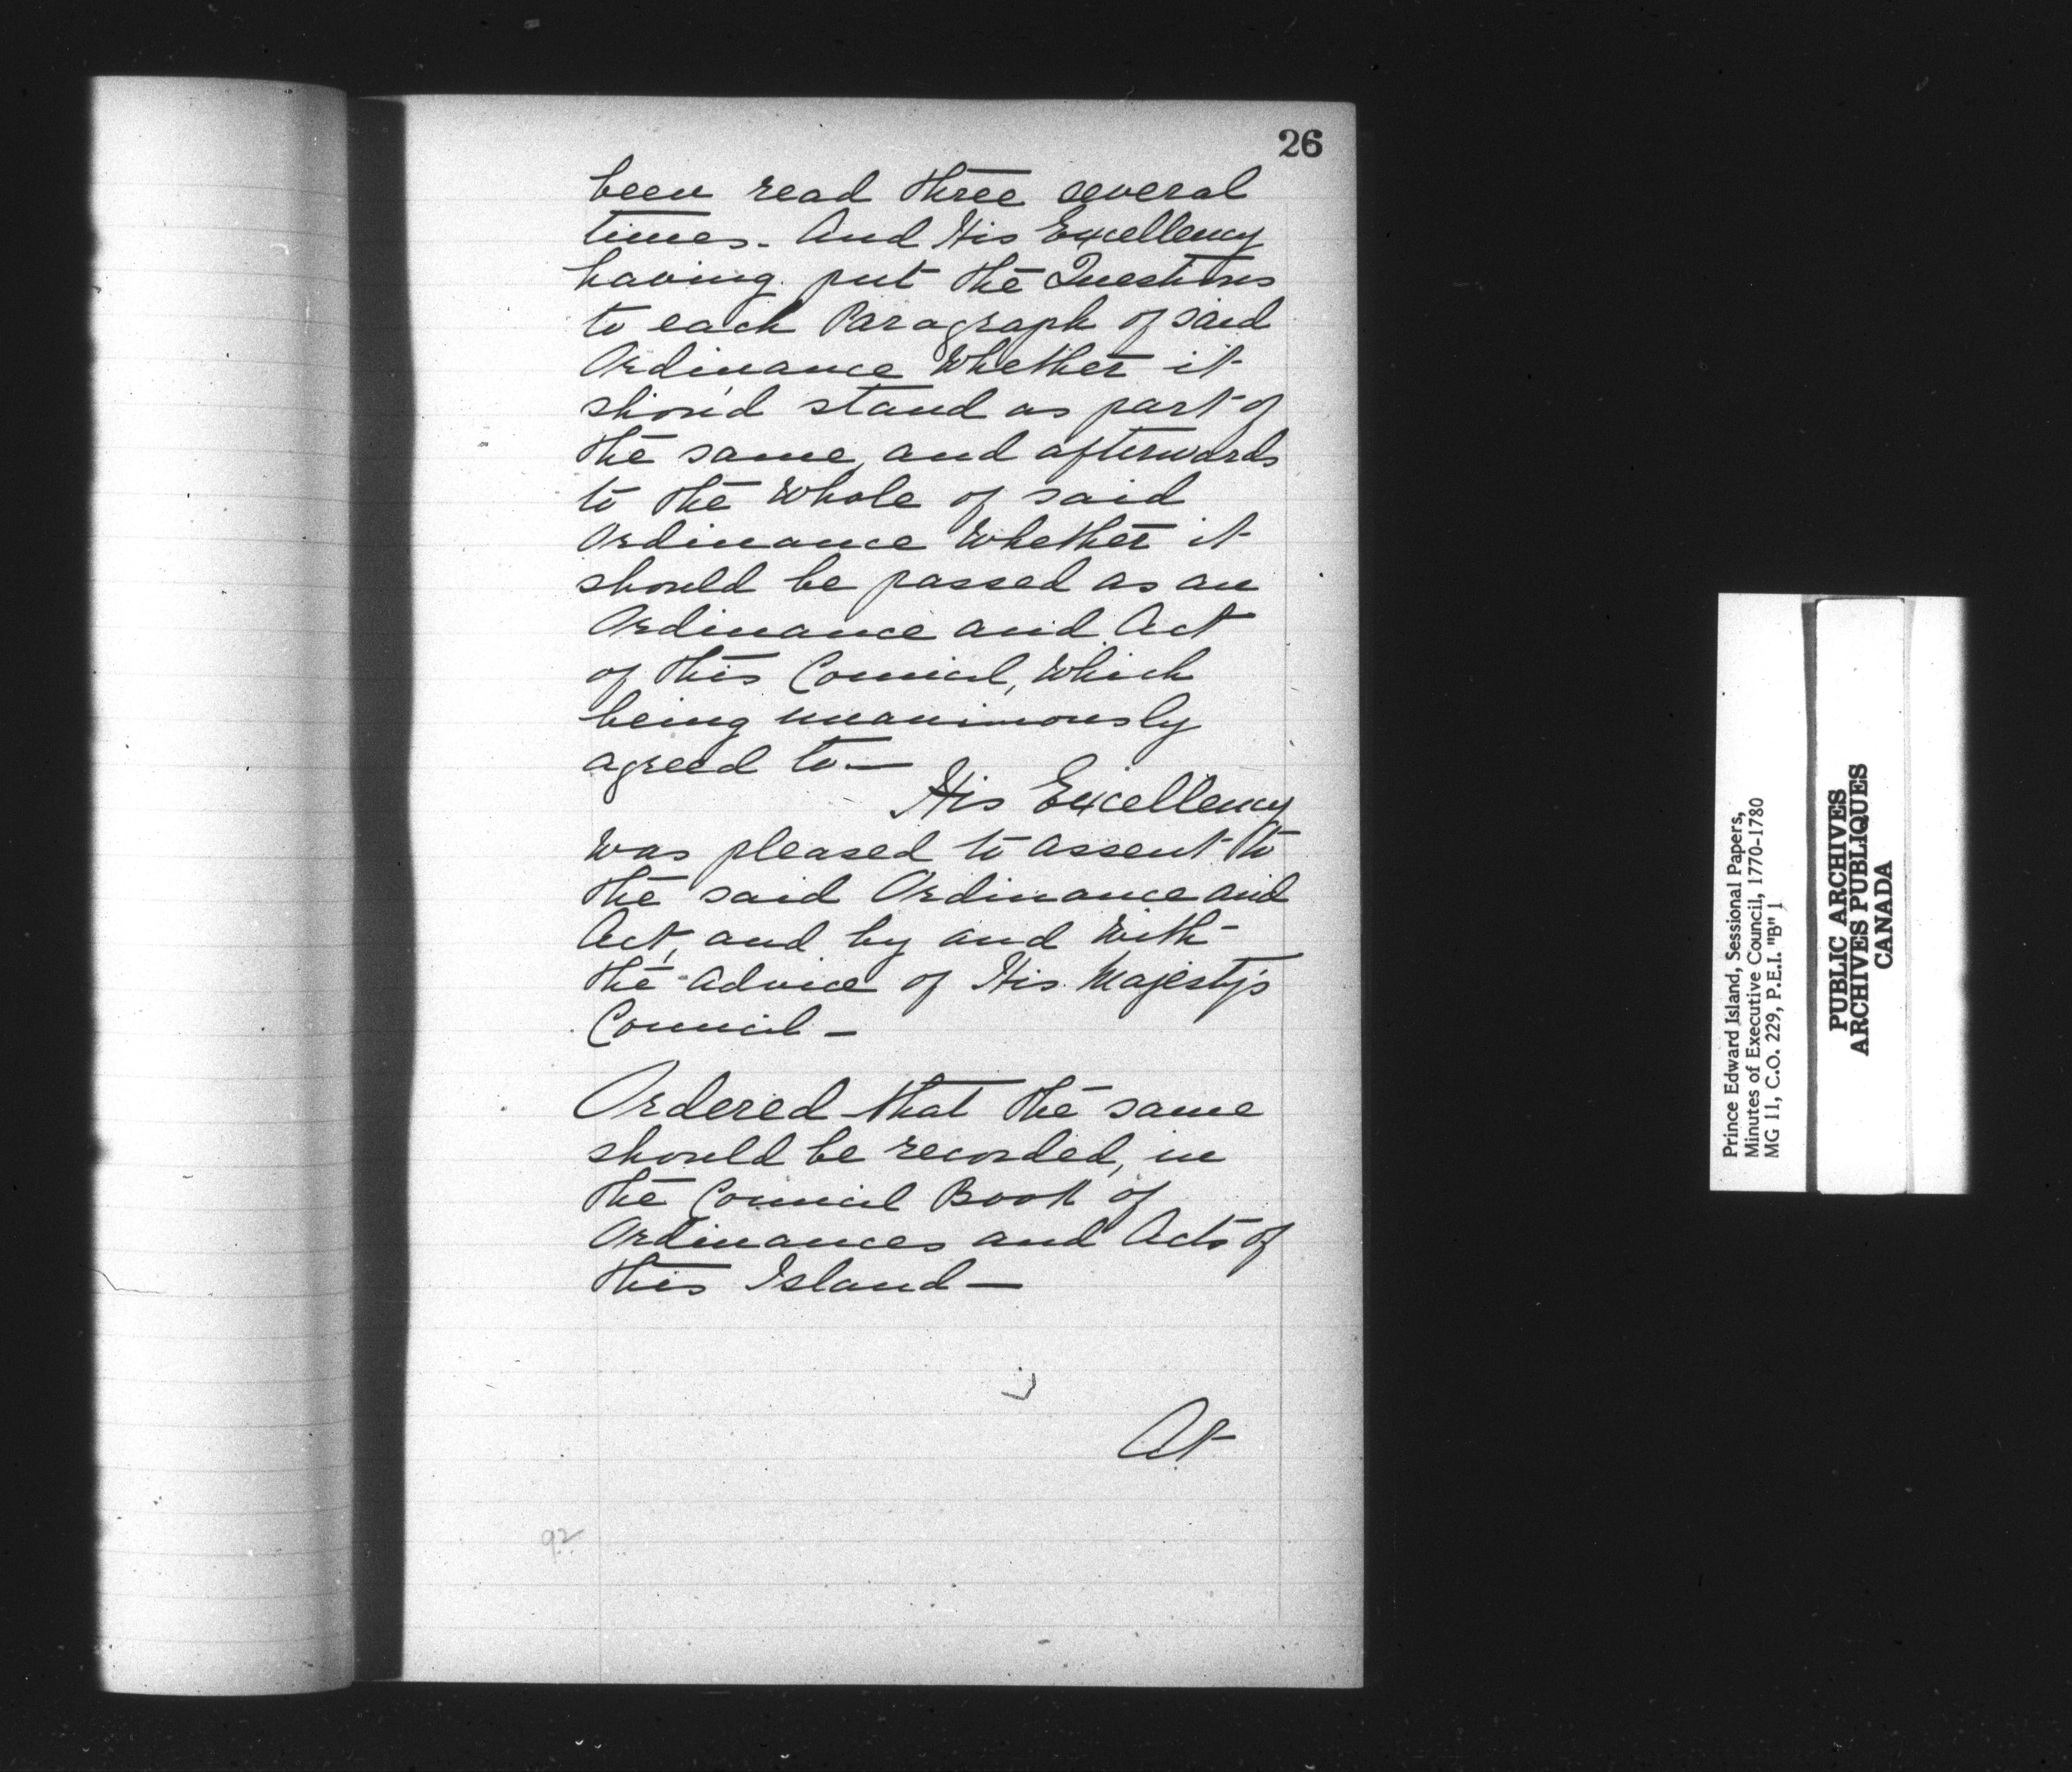 26
been read three several
times. And His Excellency
having put the Questions
to each Paragraph of said
Ordinance Whether it
shou'd stand as part of
the same, and afterwards
to the Whole of said
Ordinance Whether it
should be passed as an
Ordinance and Act
of this Council, Which
being unanimously
agreed to—
His Excellency
Was pleased to assent to
the said Ordinance and
Act, and by and With
the advice of His Majesty's
Council —
Ordered that the same
should be recorded, in
the Council Book of
Ordinances and Acts of
this Island —
At
92
Prince Edward Island, Sessional Papers,
Minutes of Executive Council, 1770-1780
MG 11, C.O. 229, P.E.I. "B" 1
PUBLIC ARCHIVES
ARCHIVES PUBLIQUES
CANADA